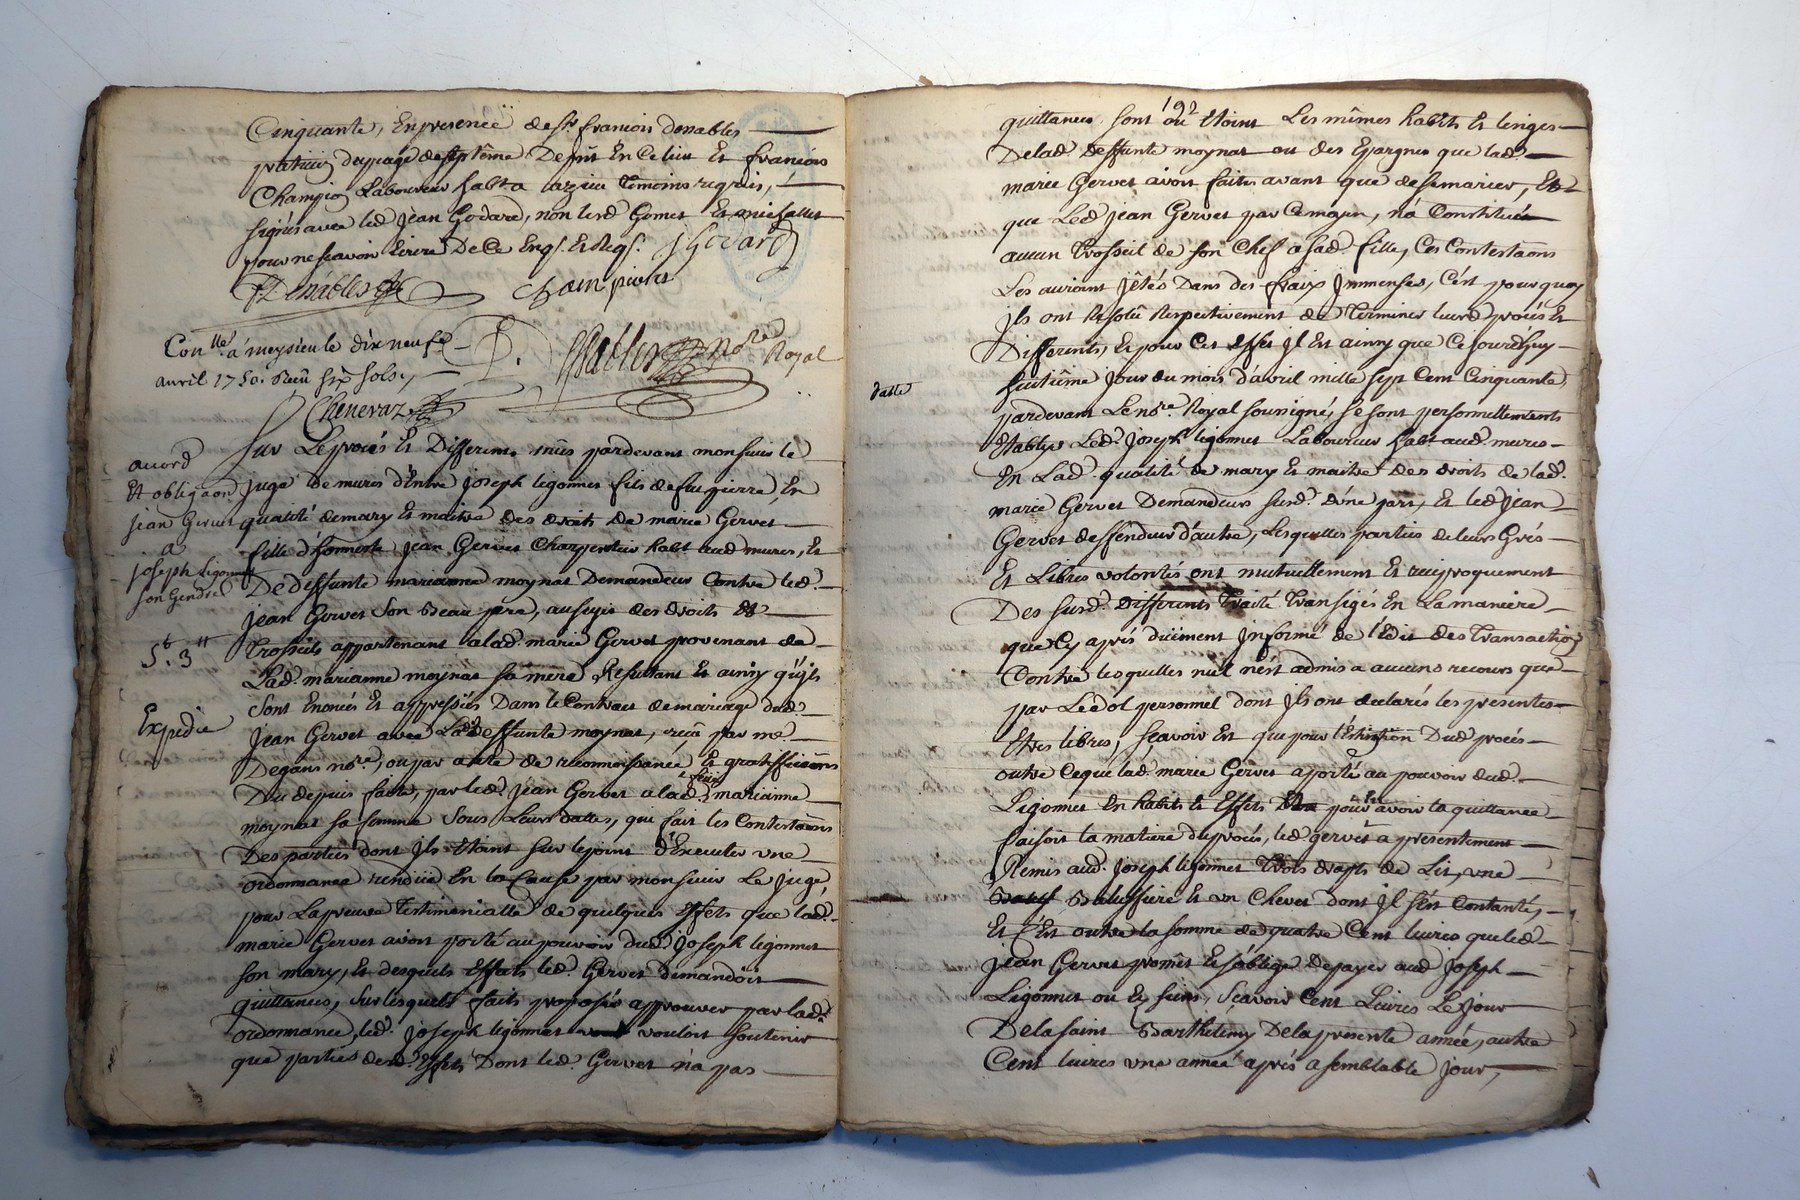 Cinquante, En presence de Sr francois denables
praticien duppage de septême De pnt En Ce lieu Et francois
Champion Laboureur habt a Temoins requis,
signés avec led jean Godard, non lesd Gomet Et
pour ne scavoir Ecrire De Ce Enq. Et Req.
JGodard
FDenables
Championt
Nore Royal
Conllé a meysieu le dix neufe
avril 1750. Reçu six sols.
Chenevaz
accord
Et obligaon
jean Gervet
a
joseph Ligonnet
son Gendre
Expedie
Sur Le procés Et Differens mûs pardevant monsieur le
juge de mures d'Entre joseph ligonnet fils de fut pierre En
qualité de mary Et maitre des droits de marie Gervet
fille d'honnete jean Gervet Charpentier habt aud mures, Et
De deffunte marianne moynat Demandeur Contre led.
jean Gervet Son Beau pere, au sujet des droits Et
Trosseils appartenant a lad. marie Gervet provenant de
Lad. marianne moynat sa mere Resultant Et ainsy qu'ils
Sont Enoncés Et appressiés Dans le Contract de mariage dud.
jean Gervet avec Lad deffunte moynat, reçû par me
Degans nore, ou par acte de reconnoissance Et gratiffications
Du depuis faite, par led. jean Gervet a lad. feüe marianne
moynat sa femme Sous Leurs dattes, qui fait les Contestaons
Des parties dont Ils Etoint Sur le point d'Executer une
ordonnance rendüe En la Cause par monsieur Le juge,
pour La preuve Testimonialle de quelques Effets que lad.
marie Gervet avoit porté au pouvoir dud. joseph ligonnet
son mary, Et desquels Effets led. Gervet demandoit
quittances, Sur lesquels faits proposés a prouver par lad.
ordonnance, led. joseph ligonnet vouloit soutenir
que parties desd. Effets Dont led. Gervet n'a pas
192
quittances sont ou Etoint Les mêmes habits Et linges
De lad. Deffunte moynat ou des Epargnes que lad.
marie Gervet avoit faites avant que de se marier, Et
que Led jean Gervet par Ce moyen, n'a Constitué
aucun Trosseil de son Chef a sad. fille, Ces Contestaons
Les auroint jêtés Dans des fraix Immenses, C'est pourquoy
Ils ont Resolû Respectivement de Terminer leurd procés Et
Differents, Et pour Cet effet Il Est ainsy que Cejourd'huy
datte
huitième jour du mois d'avril mille sept Cent Cinquante,
pardevant Le nore. Royal soussigné, se sont personnellements
Etablys Led. joseph ligonnet Laboureur habt. aud. mures
En Lad. qualité de mary Et maitre des droits de lad.
marie Gervet Demandeur susd. d'une part, Et led jean
Gervet deffendeur d'autre, Lesquelles parties de leurs Grés
Et Libres volontés ont mutuellement Et reciproquement
Des susd. Differents Traité Transigés En La maniere
que Cy aprés düement Informé de l'Edit des Transactions
Contre lesquelles nul n'est admis a aucuns recours que
par Le dol personnel dont Ils ont declarés les presentes
Etres libres, scavoir Est que pour l'Extinction Dud procés
outre Ce que lad. marie Gervet a porté au pouvoir dud.
Ligonnet En habits Et Effets pour En avoir la quittance
faisoit la matiere du procés, led gervet a presentement
Remis aud. joseph ligonnet Trois draps de Lit, une
Baluffiere Et un Chevet dont Il s'est Contanté,
Et C'Est outre la somme de quatre Cent livres que led.
jean Gervet promet Et s'oblige De payer aud joseph
Ligonnet ou Es siens, Scavoir Cent Livres Le jour
De la saint Barthelemy De la presente année, autre
Cent livres une année aprés a semblable jour,